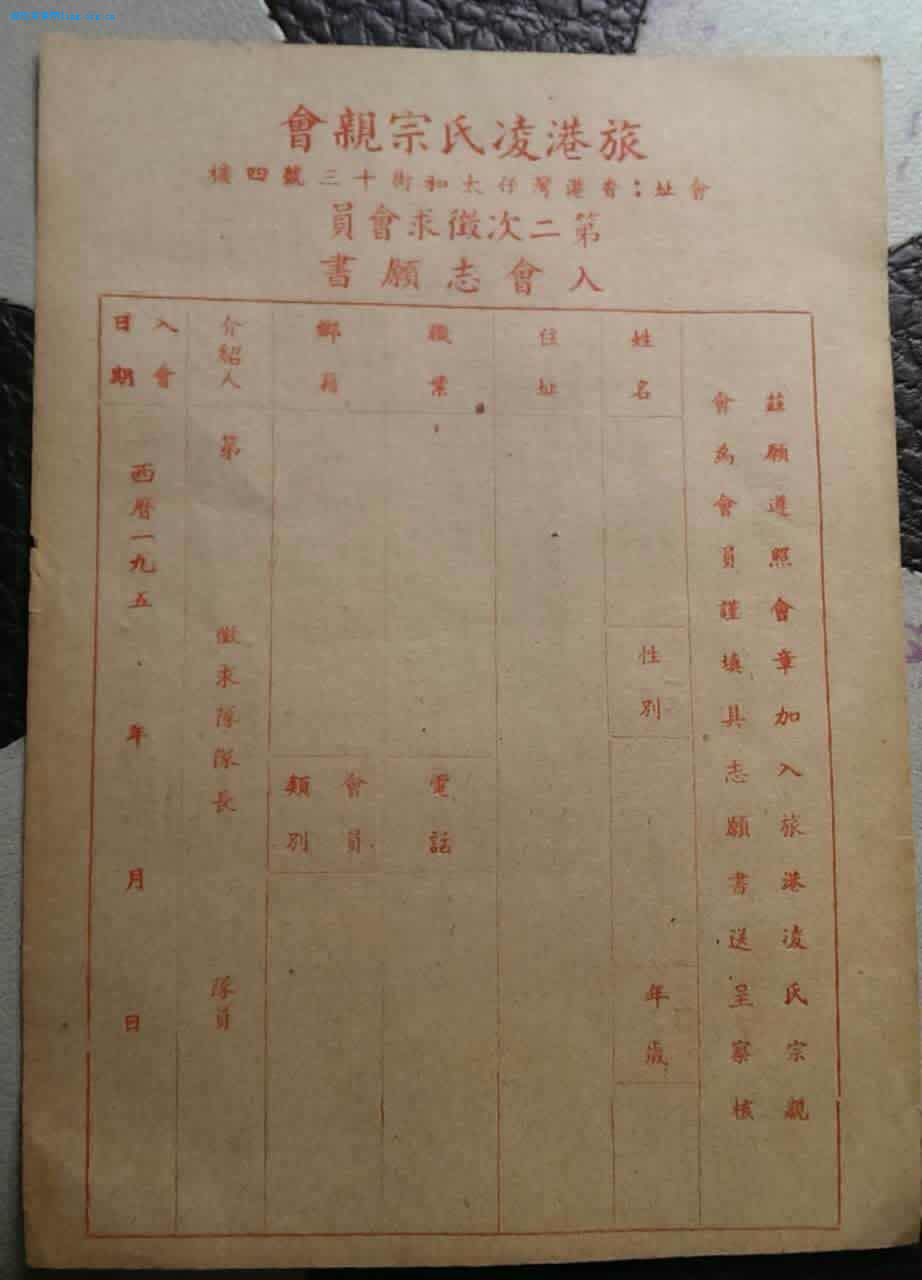 旅港凌氏宗親會
會址：香港灣仔太和街十三號四樓
第二次徵求會員
入會志願書
茲願遵照會章加入旅港凌氏宗親
會為會員謹填具志願書送呈察核
姓名
性別
年歲
住址
職業
電話
鄉籍
會員
類別
介紹人
第
徵求隊隊長
隊員
入會
日期
西曆一九五 年 月 日